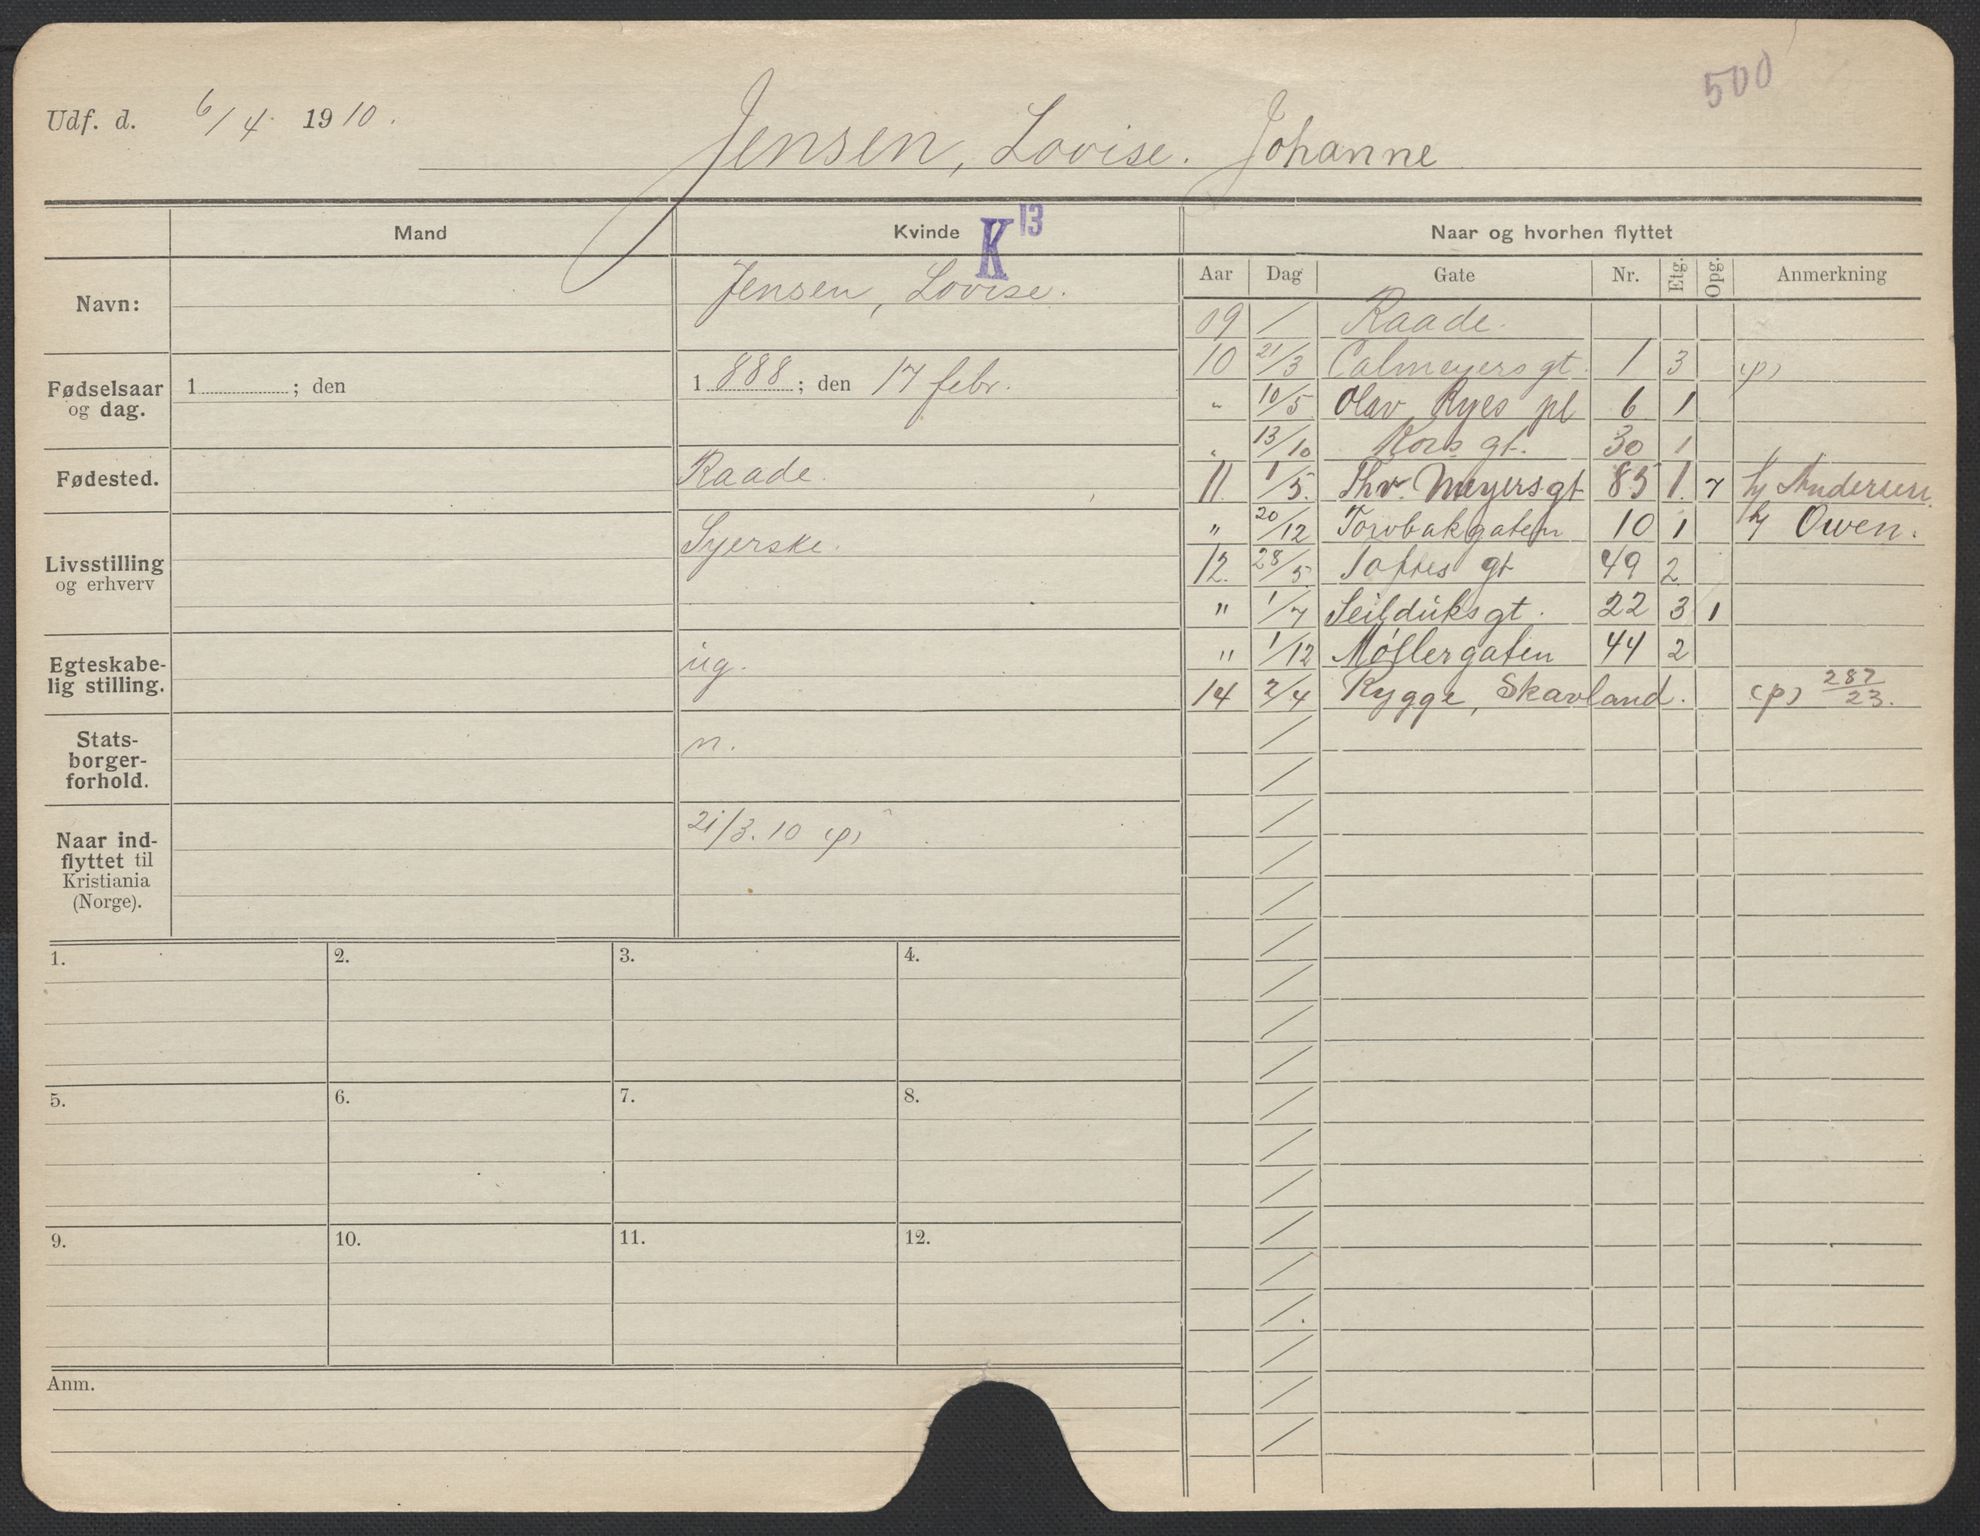 500
Udf. d. 6/4 1910.
Jensen, Lovise. Johanne
Mand
Kvinde
K 13
Naar og hvorhen flyttet
Aar Dag Gate Nr. Etg. Opg. Anmerkning
Navn:
Jensen, Lovise.
Fødselsaar og dag.
1 ; den
1 888 ; den 17 febr.
Fødested.
Raade.
Livsstilling og erhverv
Syerske.
Egteskabe-
lig stilling.
ug.
Stats-
borger-
forhold.
n.
Naar ind-
flyttet til
Kristiania
(Norge).
21/3. 10 (p)
09 / Raade.
10 21/3 Calmeyersgt. 1 3 (p)
" 10/5 Olav Ryes pl 6 1
" 13/10 Korsgt. 30 1
11. 1/5. Thv. Meyersgt 85 1. 7 hj Andersen
" 20/12 Torvbakgaten 10 1 hj Owen.
12. 28/5. Toftes gt 49 2
" 1/7 Seilduksgt. 22 3 1
" 1/12 Møllergaten 44 2
14 2/4 Rygge, Skavland. (p) 287/23.
1. 2. 3. 4.
5. 6. 7. 8.
9. 10. 11. 12.
Anm.